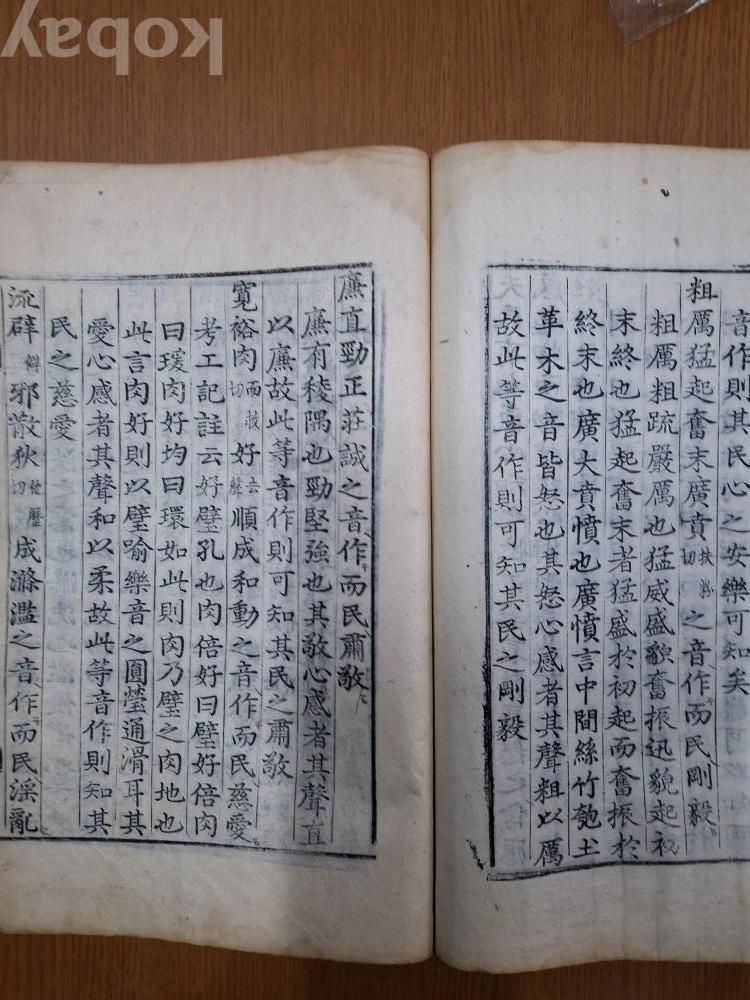 音作則其民心之安樂可知矣
粗厲猛起奮末廣賁扶粉切之音作而民剛毅
粗厲粗疏嚴厲也猛威盛貌奮振迅貌起初
末終也猛起奮末者猛盛於初起而奮振於
終末也廣大賁憤也廣憤言中間絲竹匏土
革木之音皆怒也其怒心感者其聲粗以厲
故此等音作則可知其民之剛毅
廉直勁正莊誠之音作而民肅敬
廉有稜隅也勁堅強也其敬心感者其聲直
以廉故此等音作則可知其民之肅敬
寬裕肉而救切好去聲順成和動之音作而民慈愛
考工記註云好璧孔也肉倍好曰璧好倍肉
曰瑗肉好均曰環如此則肉乃璧之肉地也
此言肉好則以璧喻樂音之圓瑩通滑耳其
愛心感者其聲和以柔故此等音作則知其
民之慈愛
流辟僻邪散狄他歷切成滌濫之音作而民淫亂
kobay